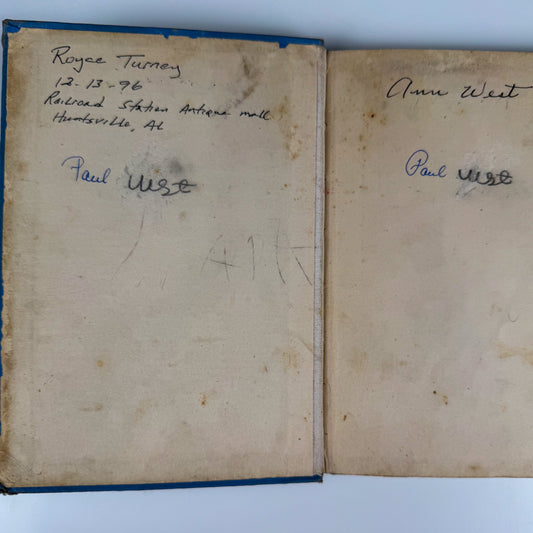 Royce Turney
12-13-96
Railroad Station Antique mall
Huntsville, AL
Paul West
Ann West
Paul West